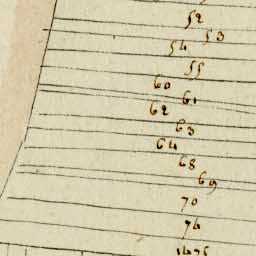 52
53
54
55
60
61
62
63
64
68
69
70
74
1475